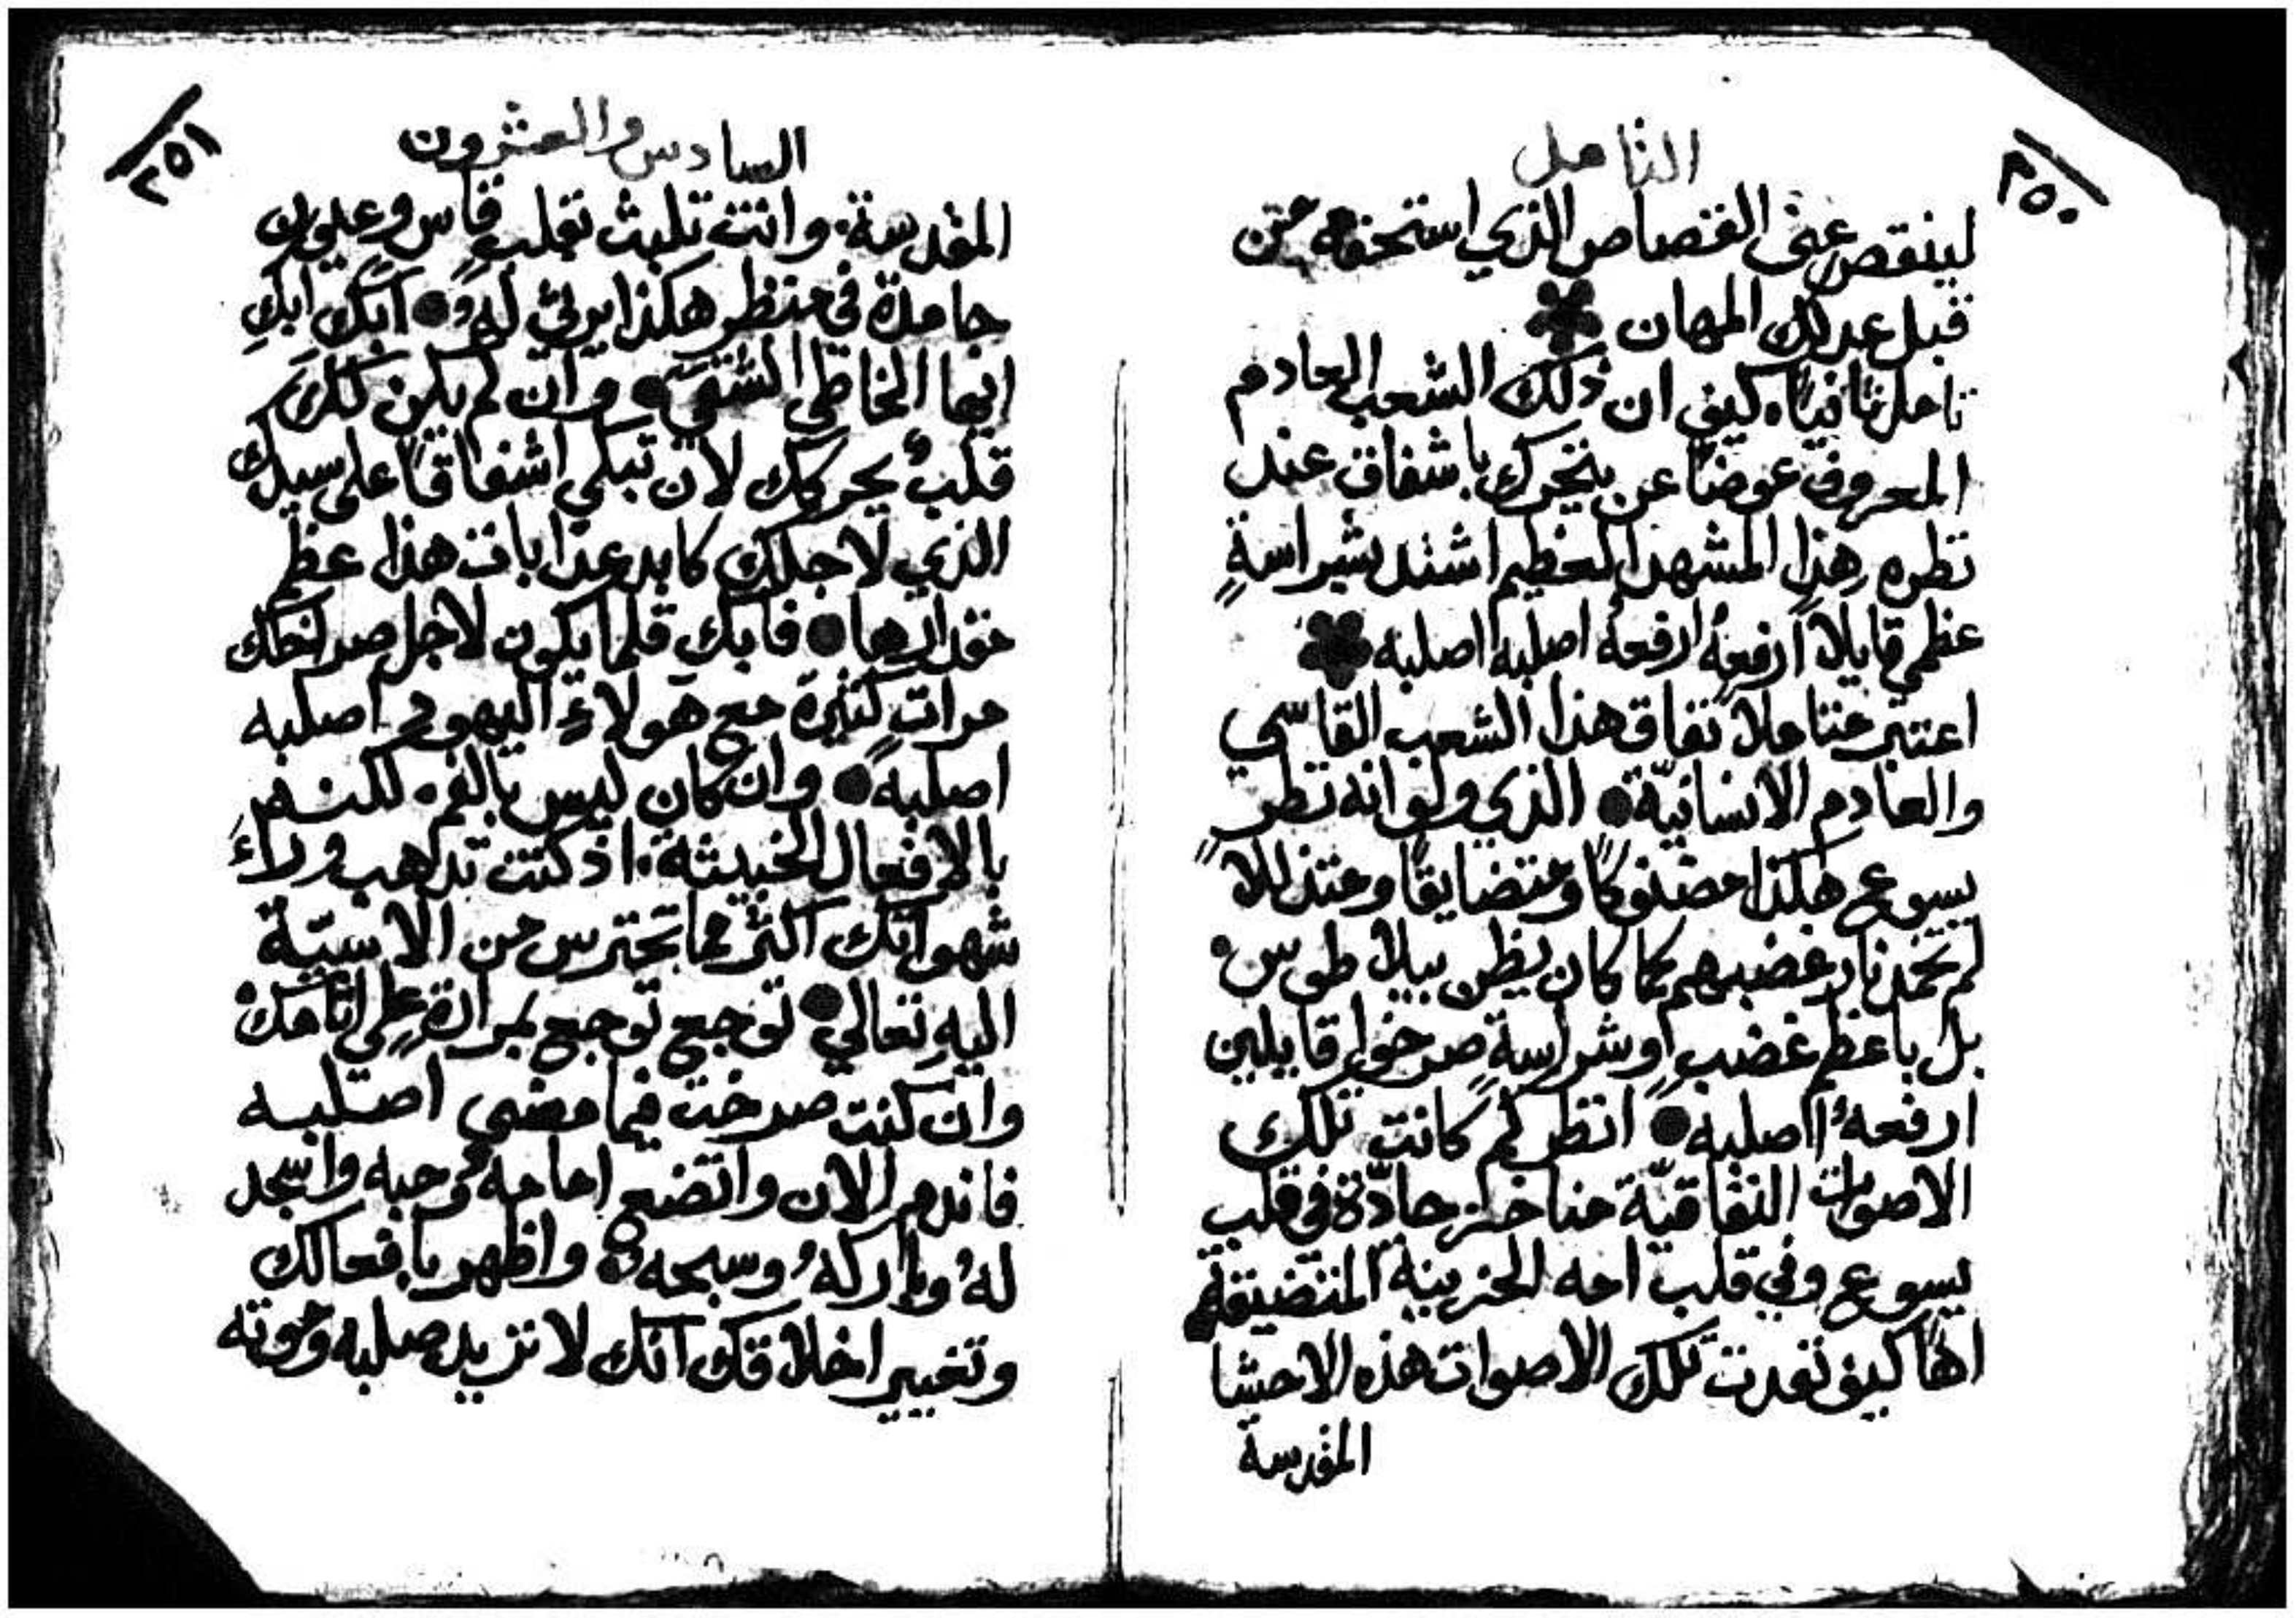 ٢٥٠
التامل
لينقص عني القصاص الذي استحقه من
قبل عدلك المهان
تامل ثانيًا كيف ان ذلك الشعب العادم
المعروف عوضًا عن يتحرك باشفاق عند
نظره هذا المشهد العظيم اشتد بشراسةٍ
عظمي قايلًا ارفعهُ ارفعهُ اصلبه اصلبه
اعتبر متاملًا نفاق هذا الشعب القاسي
والعادم الانسانيّة الذي ولو انه نظر
يسوع هكذا مضنوكًا ومتضايقًا ومتذللًا
لم تخمد نار غضبهم كما كان يظن بيلاطوس
بل باعظم غضبٍ وشراسةٍ صرخوا قايلين
ارفعهُ اصلبه انظر كم كانت تلك
الاصوات النفاقيّة مناخز حادّة في قلب
يسوع وفي قلب امه الحزينة المتضيقة
اهًا كيف نفدت تلك الاصوات هذه الاحشا
المقدسة
٢٥١
السادس والعشرون
المقدسة وانت تلبث بقلب قاس وعيون
جامدة في منظر هكذا يرثي لهُ ابك ابكِ
ايها الخاطي الشقي وان لم يكن لك
قلبٌ يحركك لان تبكي اشفاقًا علي سيدك
الذي لاجلك كابد عذابات هذا عظم
مقدارها فابك قلما يكون لاجل صراخك
مرات كثيرة مع هولاءِ اليهود اصلبه
اصلبه وان كان ليس بالفم لكن
بالافعال الخبيثة اذ كنت تذهب وراءَ
شهواتك اكثر مما تحترس من الاسيّة
اليهِ تعالي توجع توجع بمرارة علي اثامك
وان كنت صرخت فيما مضي اصلبه
فاندم الان واتضع امامهُ وحبه واسجد
لهُ وباركهُ وسبحه واظهر بافعالك
وتغيير اخلاقك انك لا تريد صلبه وموته